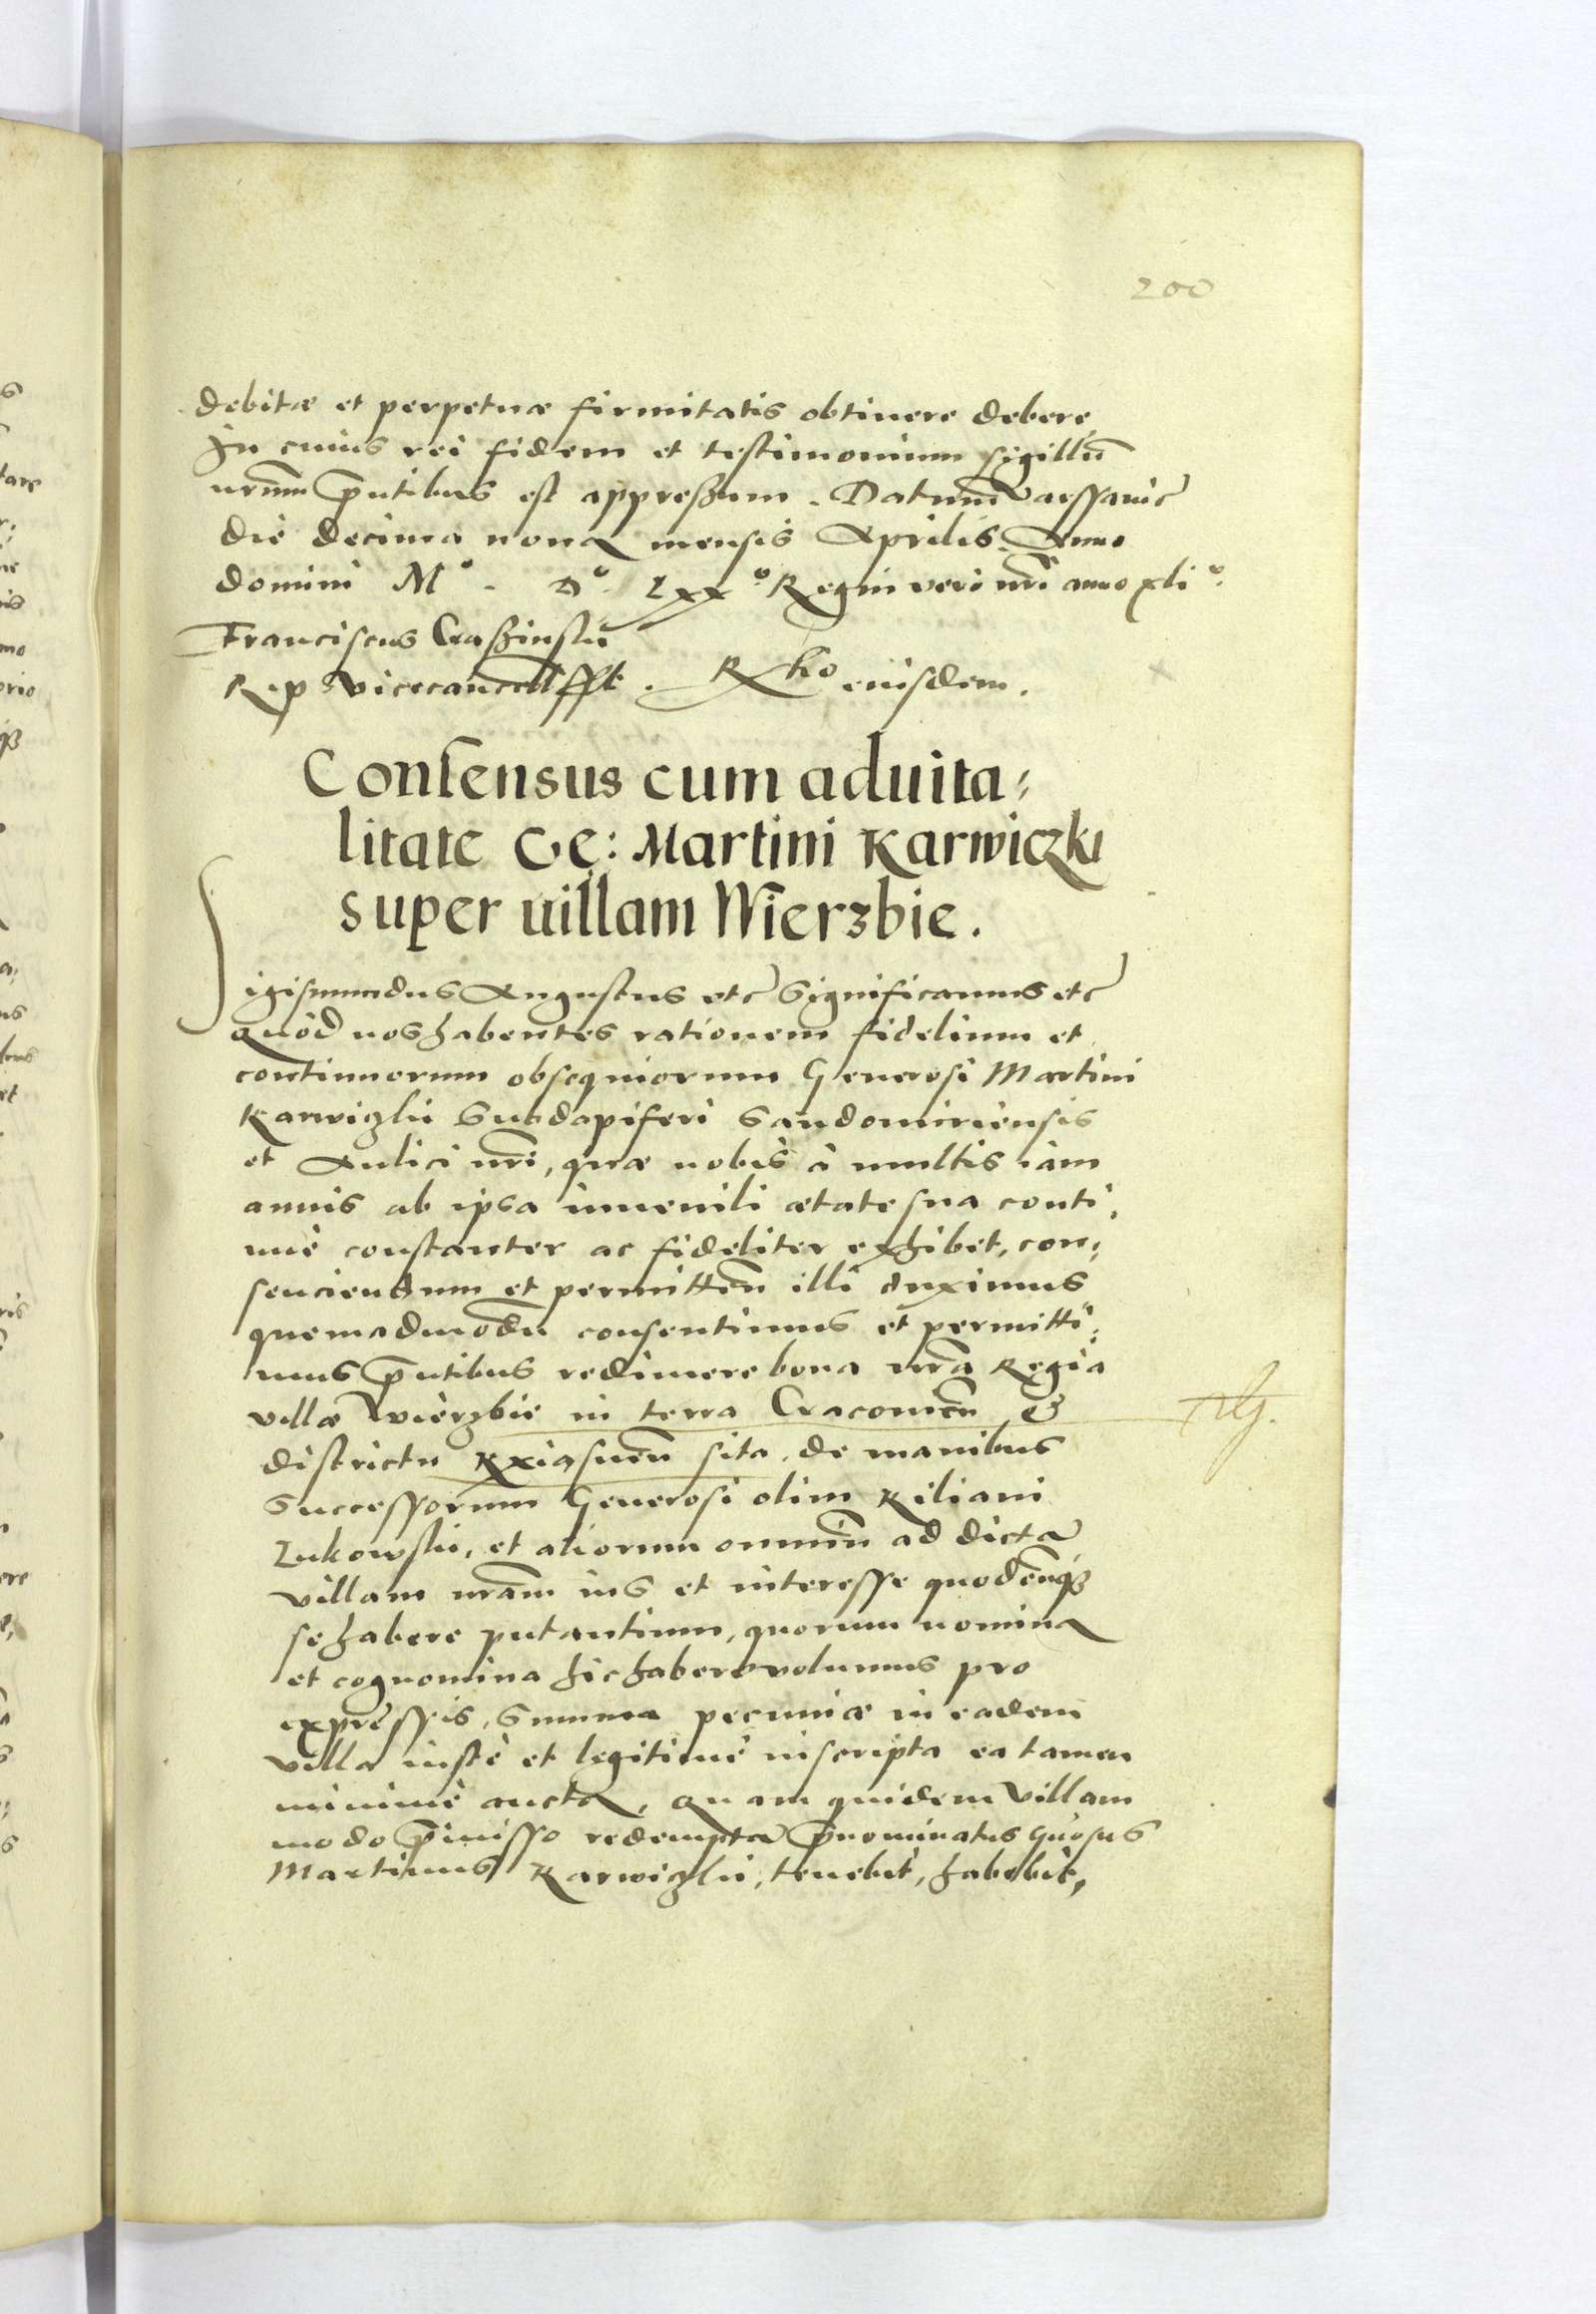 200
debitæ et perpetuæ firmitatis obtinere debere
In cuius rei fidem et testimonium sigillũ
nr̃um p̃ntibus est appressum. Datum Varssaviæ
die decima nona mensis Aprilis Anno
domini Mº. Dº. Lxxº Regni vero nr̃i anno xliº.
Franciscus Craszinsky
R. p. vicecancell sst. Rko eiusdem.
Consensus cum aduita-
litate Ge: Martini Karwiczki
super uillam Wierzbie.
Sigismundus Augustus etc Significamus etc
quòd nos habentes rationem fidelium et
continuorum obsequiorum Generosi Martini
Karwiczki Subdapiferi Sandomiriensis
et Aulici nr̃i, quæ nobis à multis iam
annis ab ipsa iuuenili ætate sua conti,
nuè constanter ac fideliter exhibet, con,
senciendum et permitteñ illi duximus
quemadmodũ consentimus et permitti,
mus p̃ntibus redimere bona nr̃a Regia
villæ Wierzbie in terra Cracouieñ &
districtu Kxiąsueñ sita, de manibus
Successorum Generosi olim Kiliani
Zukowski, et aliorum omniũ ad dictã
villam nr̃am ius et interesse quodcũqȝ
se habere putantium, quorum nomina
et cognomina hic habere volumus pro
expressis, Summa pecuniæ in eadem
villa iustè et legitimè inscripta ea tamen
minimè aucta, Quam quidem villam
modo p̃misso redemptã p̃nominatus Gñosus
Martinus Karwiczki, tenebit, habebit,